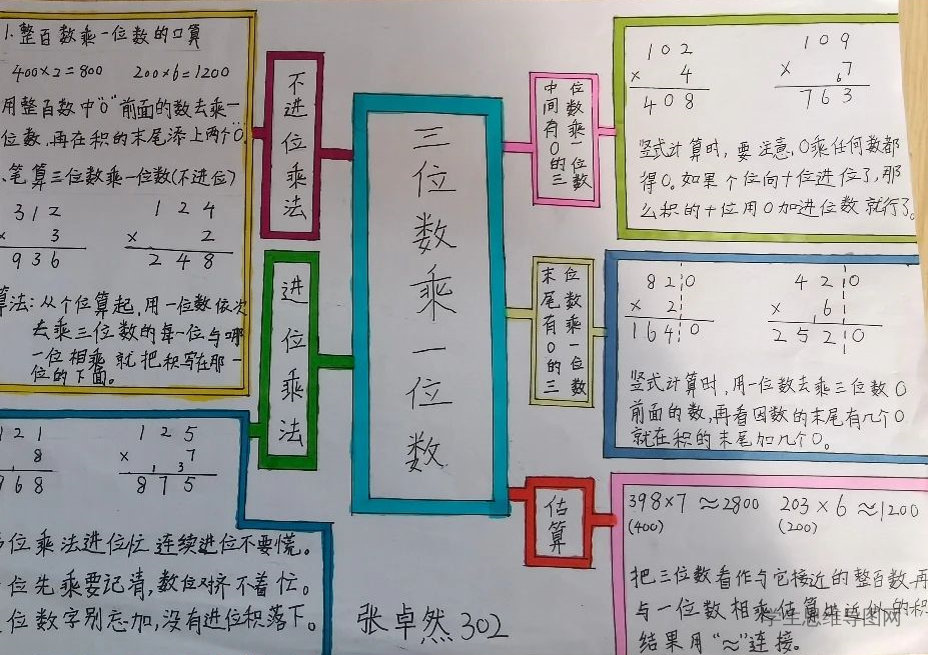 1.整百数乘一位数的口算
400×2=800 200×6=1200
用整百数中"0"前面的数去乘一
位数,再在积的末尾添上两个0.
、笔算三位数乘一位数(不进位)
312 124
× 3 × 2
936 248
算法:从个位算起,用一位数依次
去乘三位数的每一位与哪
一位相乘就把积写在那一
位的下面。
121 125
8 × 7
1 3
968 875
位乘法进位忙 连续进位不要慌。
位先乘要记清,数位对齐不着忙。
位数字别忘加,没有进位积落下。
不进位乘法
进位乘法
三位数乘一位数
张卓然302
中间有0的三
位数乘一位数
末尾有0的三
位数乘一位数
估算
102 109
× 4 × 7
6
408 763
竖式计算时,要注意,0乘任何数都
得0。如果个位向十位进位了,那
么积的十位用0加进位数就行了。
820 420
× 2 × 6
1
1640 2520
竖式计算时,用一位数去乘三位数0
前面的数,再看因数的末尾有几个0
就在积的末尾加几个0。
398×7≈2800 203×6≈1200
(400) (200)
把三位数看作与它接近的整百数.再
与一位数相乘估算出近似的积
结果用"≈"连接。
学生思维导图网